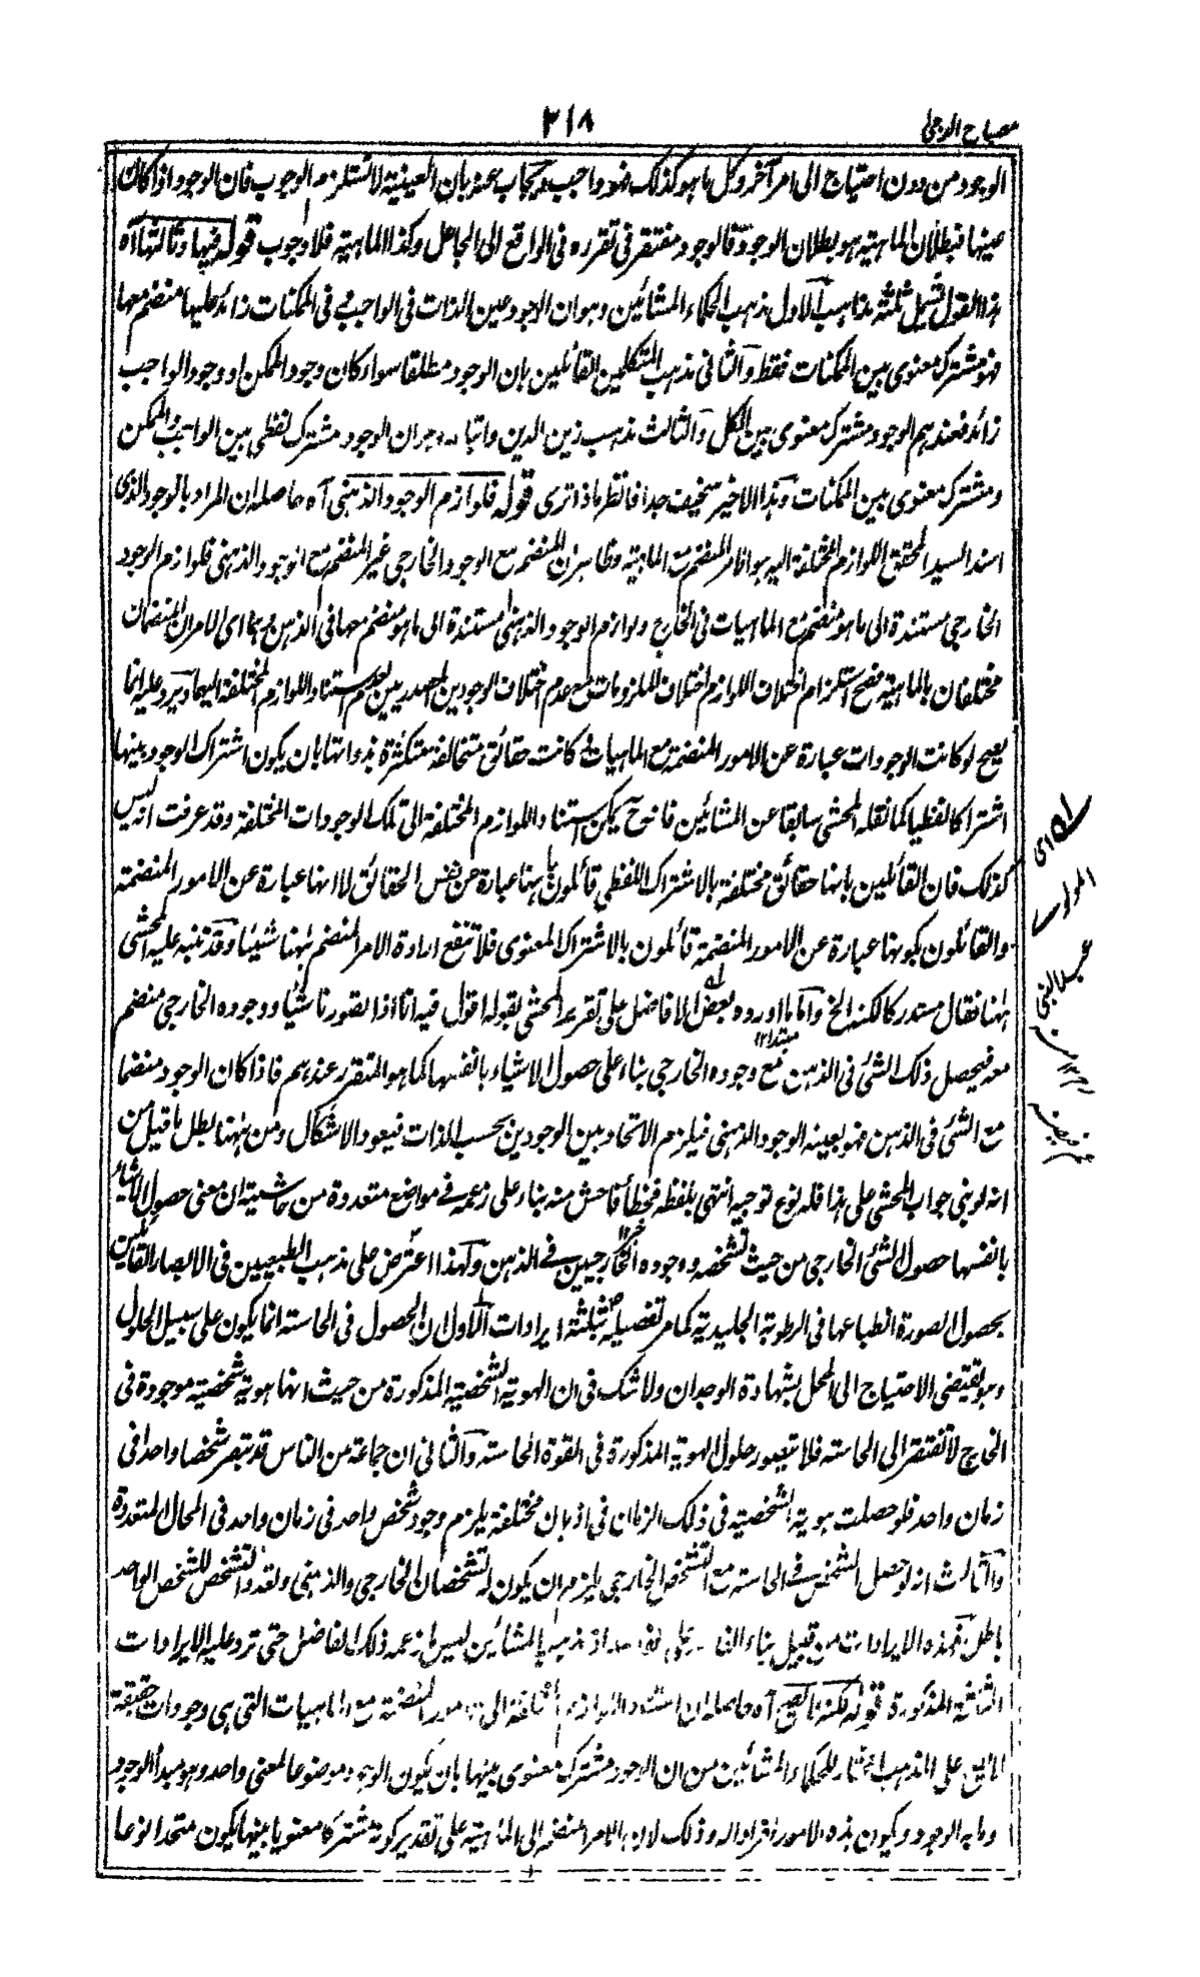 مصباح الدجى
٢١٨
الوجود من دون احتياج الى امر آخر وكل ما هو كذلك فهو واجب ويجاب عنه بان العينية لا تستلزم الوجوب فان الوجود اذا كان
عينها فبطلان الماهية هو بطلان الوجود فالوجود مفتقر فى تقرره فى الواقع الى الجاعل وكذا الماهية فلا وجوب قوله فيها وثالثها آه
هذا القول قيل ثلثة مذاهب الاول مذهب الحكماء المشائين وهو ان الوجود عين الذات فى الواجب وفى الممكنات زائد عليها منضم معها
فهو مشترك معنوى بين الممكنات فقط والثانى مذهب المتكلمين القائلين بان الوجود مطلقا سواء كان وجود الممكن او وجود الواجب
زائد فعندهم الوجود مشترك معنوى بين الكل والثالث مذهب زين الدين واتباعه وهو ان الوجود مشترك لفظى بين الواجب والممكن
ومشترك معنوى بين الممكنات وهذا الاخير سخيف جدا فانظر ماذا ترى قوله فلوازم الوجود الذهنى آه حاصله ان المراد بالوجود الذى
اسند السيد المحقق اللوازم المختلفة اليه هو الامر المنضم مع الماهية وظاهر ان المنضم مع الوجود الخارجى غير المنضم مع الوجود الذهنى فلوازم الوجود
الخارجى مستندة الى ما هو منضم مع الماهيات فى الخارج ولوازم الوجود الذهنى مستندة الى ما هو منضم معها فى الذهن وهما اى الامران المنضمان
مختلفان بالماهية فصح استلزام اختلاف اللوازم اختلاف الملزومات مع عدم اختلاف الوجودين المصدريين لعدم استناد اللوازم المختلفة اليهما ويرد عليه انما
يصح لو كانت الوجودات عبارة عن الامور المنضمة مع الماهيات وكانت حقائق متخالفة متكثرة بذواتها بان يكون اشتراك الوجود بينها
اشتراكا لفظيا كما نقله المحشى سابقا عن المشائين فانه ح يمكن استناد اللوازم المختلفة الى تلك الوجودات المختلفة وقد عرفت انه ليس
كذلك فان القائلين بانها حقائق مختلفة بالاشتراك اللفظى قائلون بانها عبارة عن نفس الحقائق لا انها عبارة عن الامور المنضمة
والقائلون بكونها عبارة عن الامور المنضمة قائلون بالاشتراك المعنوى فلا تنفع ارادة الامر المنضم ههنا شيئا وقد تنبه عليه المحشى
ههنا فقال مستدركا لكنه الخ واما ما اورده بعض الافاضل على تقرير المحشى بقوله اقول فيه انا اذا تصورنا شيئا ووجوده الخارجى منضم
معه فيحصل ذلك الشئ فى الذهن مع وجوده الخارجى بناء على حصول الاشياء بانفسها كما هو المتقرر عندهم فاذا كان الوجود منضما
مع الشئ فى الذهن فهو بعينه الوجود الذهنى فيلزم الاتحاد بين الوجودين بحسب الذات فيعود الاشكال ومن ههنا بطل ما قيل من
انه لو بنى جواب المحشى على هذا فله نوع توجيه انتهى بلفظه فخطأ فاحش منه بناء على زعمه فى مواضع متعددة من حاشيته ان معنى حصول الاشياء
بانفسها حصول الشئ الخارجى من حيث تشخصه ووجوده الخارجيين فى الذهن ولهذا اعترض على مذهب الطبيعيين فى الابصار القائلين
بحصول الصورة انطباعها فى الرطوبة الجليدية كما مر تفصيله بثلثة ايرادات الاول ان الحصول فى الحاسته انما يكون على سبيل الحلول
وهو يقتضى الاحتياج الى المحل بشهادة الوجدان ولا شك فى ان الهوية الشخصية المذكورة من حيث انها هوية شخصية موجودة فى
الخارج لا تفتقر الى الحاسته فلا يتصور حلول الهوية المذكورة فى القوة الحاسته والثانى ان جماعة من الناس قد تبصر شخصا واحدا فى
زمان واحد فلو حصلت هوية الشخصية فى ذلك الزمان فى اذهان مختلفة يلزم وجود شخص واحد فى زمان واحد فى المحال المتعددة
والثالث انه لو حصل الشخص فى الحاسته مع التشخص الخارجى يلزم ان يكون له تشخصان الخارجى والذهنى وتعدد التشخص للشخص الواحد
باطل فهذه الايرادات من قبيل بناء الفاسد على الفاسد اذ مذهب المشائين ليس ما زعمه ذلك الفاضل حتى ترد عليه الايرادات
الثلثة المذكورة قوله لكنه لا يصح آه حاصله ان استناد اللوازم المختلفة الى الامور المنضمة مع الماهيات التى هى وجودات حقيقة
لا يتأتى على المذهب المختار للحكماء المشائين من ان الوجود مشترك معنوى بينها بان يكون الوجود موضوعا لمعنى واحد وهو مبدأ الوجود
وما به الوجود ويكون هذه الامور افرادا له وذلك لان الامر المنضم الى الماهية على تقدير كونه مشتركا معنويا بينها يكون متحدا نوعا
مبتدا ١٢
له اى
المولوى
عبد النبى